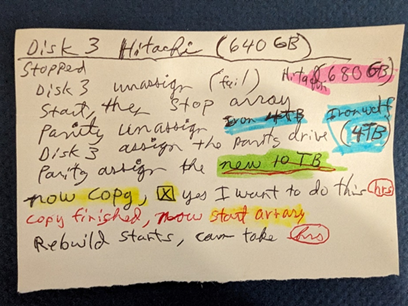 Disk 3 Hitachi (640 GB)
Stopped
Disk 3 unassign (fail) Hitachi 680 GB
Start the stop array
Parity unassign Iron 4TB Ironwolf
Disk 3 assign the parity drive (4TB)
Parity assign the new 10 TB
now copy, [X] yes I want to do this hrs
copy finished, now start array
Rebuild starts, can take hrs